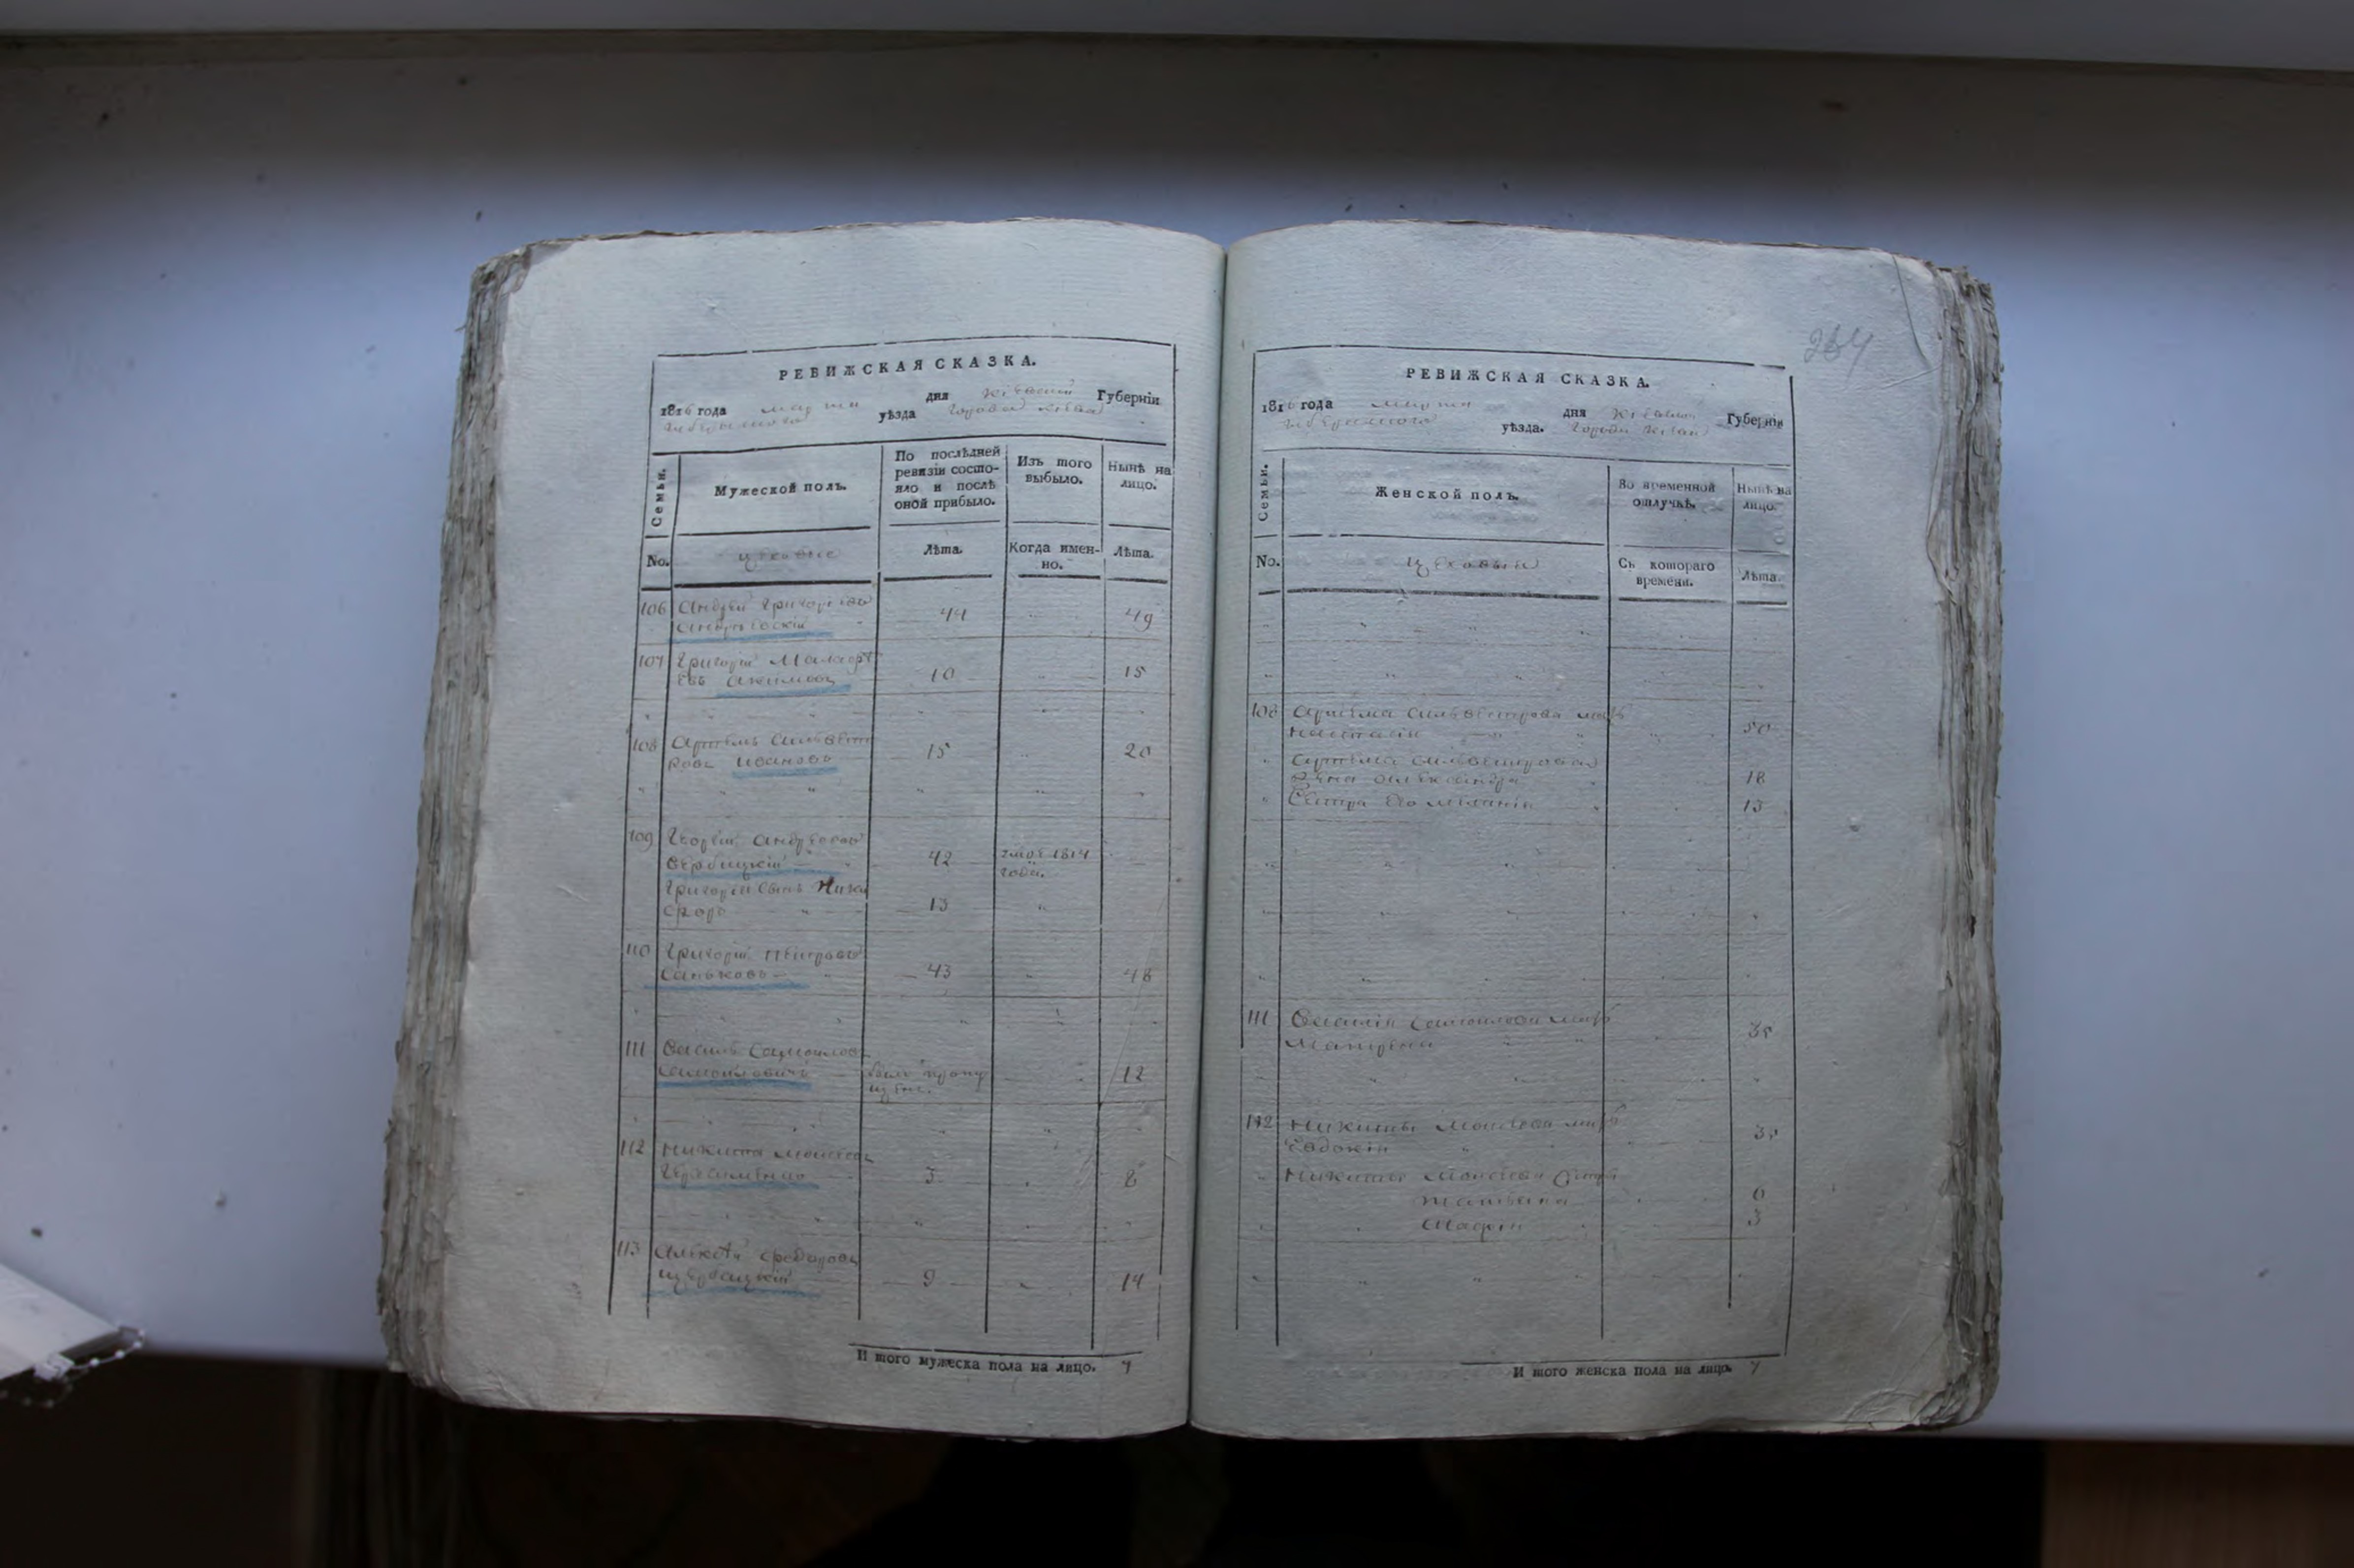 РЕВИЖСКАЯ СКАЗКА.
1816 года марта дня Кіевской Губерніи
Губернского уѣзда Города Кіева
Семьи.
Мужеской полъ.
По послѣдней
ревизіи состо-
яло и послѣ
оной прибыло.
Изъ того
выбыло.
Нынѣ на
лицо.
No.
цеховые
Лѣта.
Когда имен-
но.
Лѣта.
106 Андрей Григорьевъ
Андріевскій 44 49
107 Григорій
евъ Акимовъ 10 15
108 Артемъ Сильвест
ровъ Ивановъ 15 20
109 Георгій Андреевъ
Вербицкій 42 1814
года.
Григорій сынъ Ники
форъ 13
110 Григорій Петровъ
Саньковъ 43 48
111 Василь Самойловъ
Самойловичъ былъ 12
112 Никита Моисеевъ
Герасименко 3 8
113 Алексѣй Федоровъ
9 14
И того мужеска пола на лицо. 7
264
РЕВИЖСКАЯ СКАЗКА.
1816 года марта дня Кіевской Губерніи
Губернского уѣзда. Города Кіева
Семьи.
Женской полъ.
Во временной
отлучкѣ.
Нынѣ на
лицо.
No.
цеховыя
Съ котораго
времени.
Лѣта.
108 Артема Сильвестрова мать
Наталія 50
Артема Сильвестрова
жена Александра 18
Сестра его Меланія 13
111 Василія Самойлова мать
Матрена 35
112 Никиты Моисеева мать
Евдокія 35
Никиты Моисеева сестры
Татьяна 6
Марія 3
И того женска пола на лицо. 7